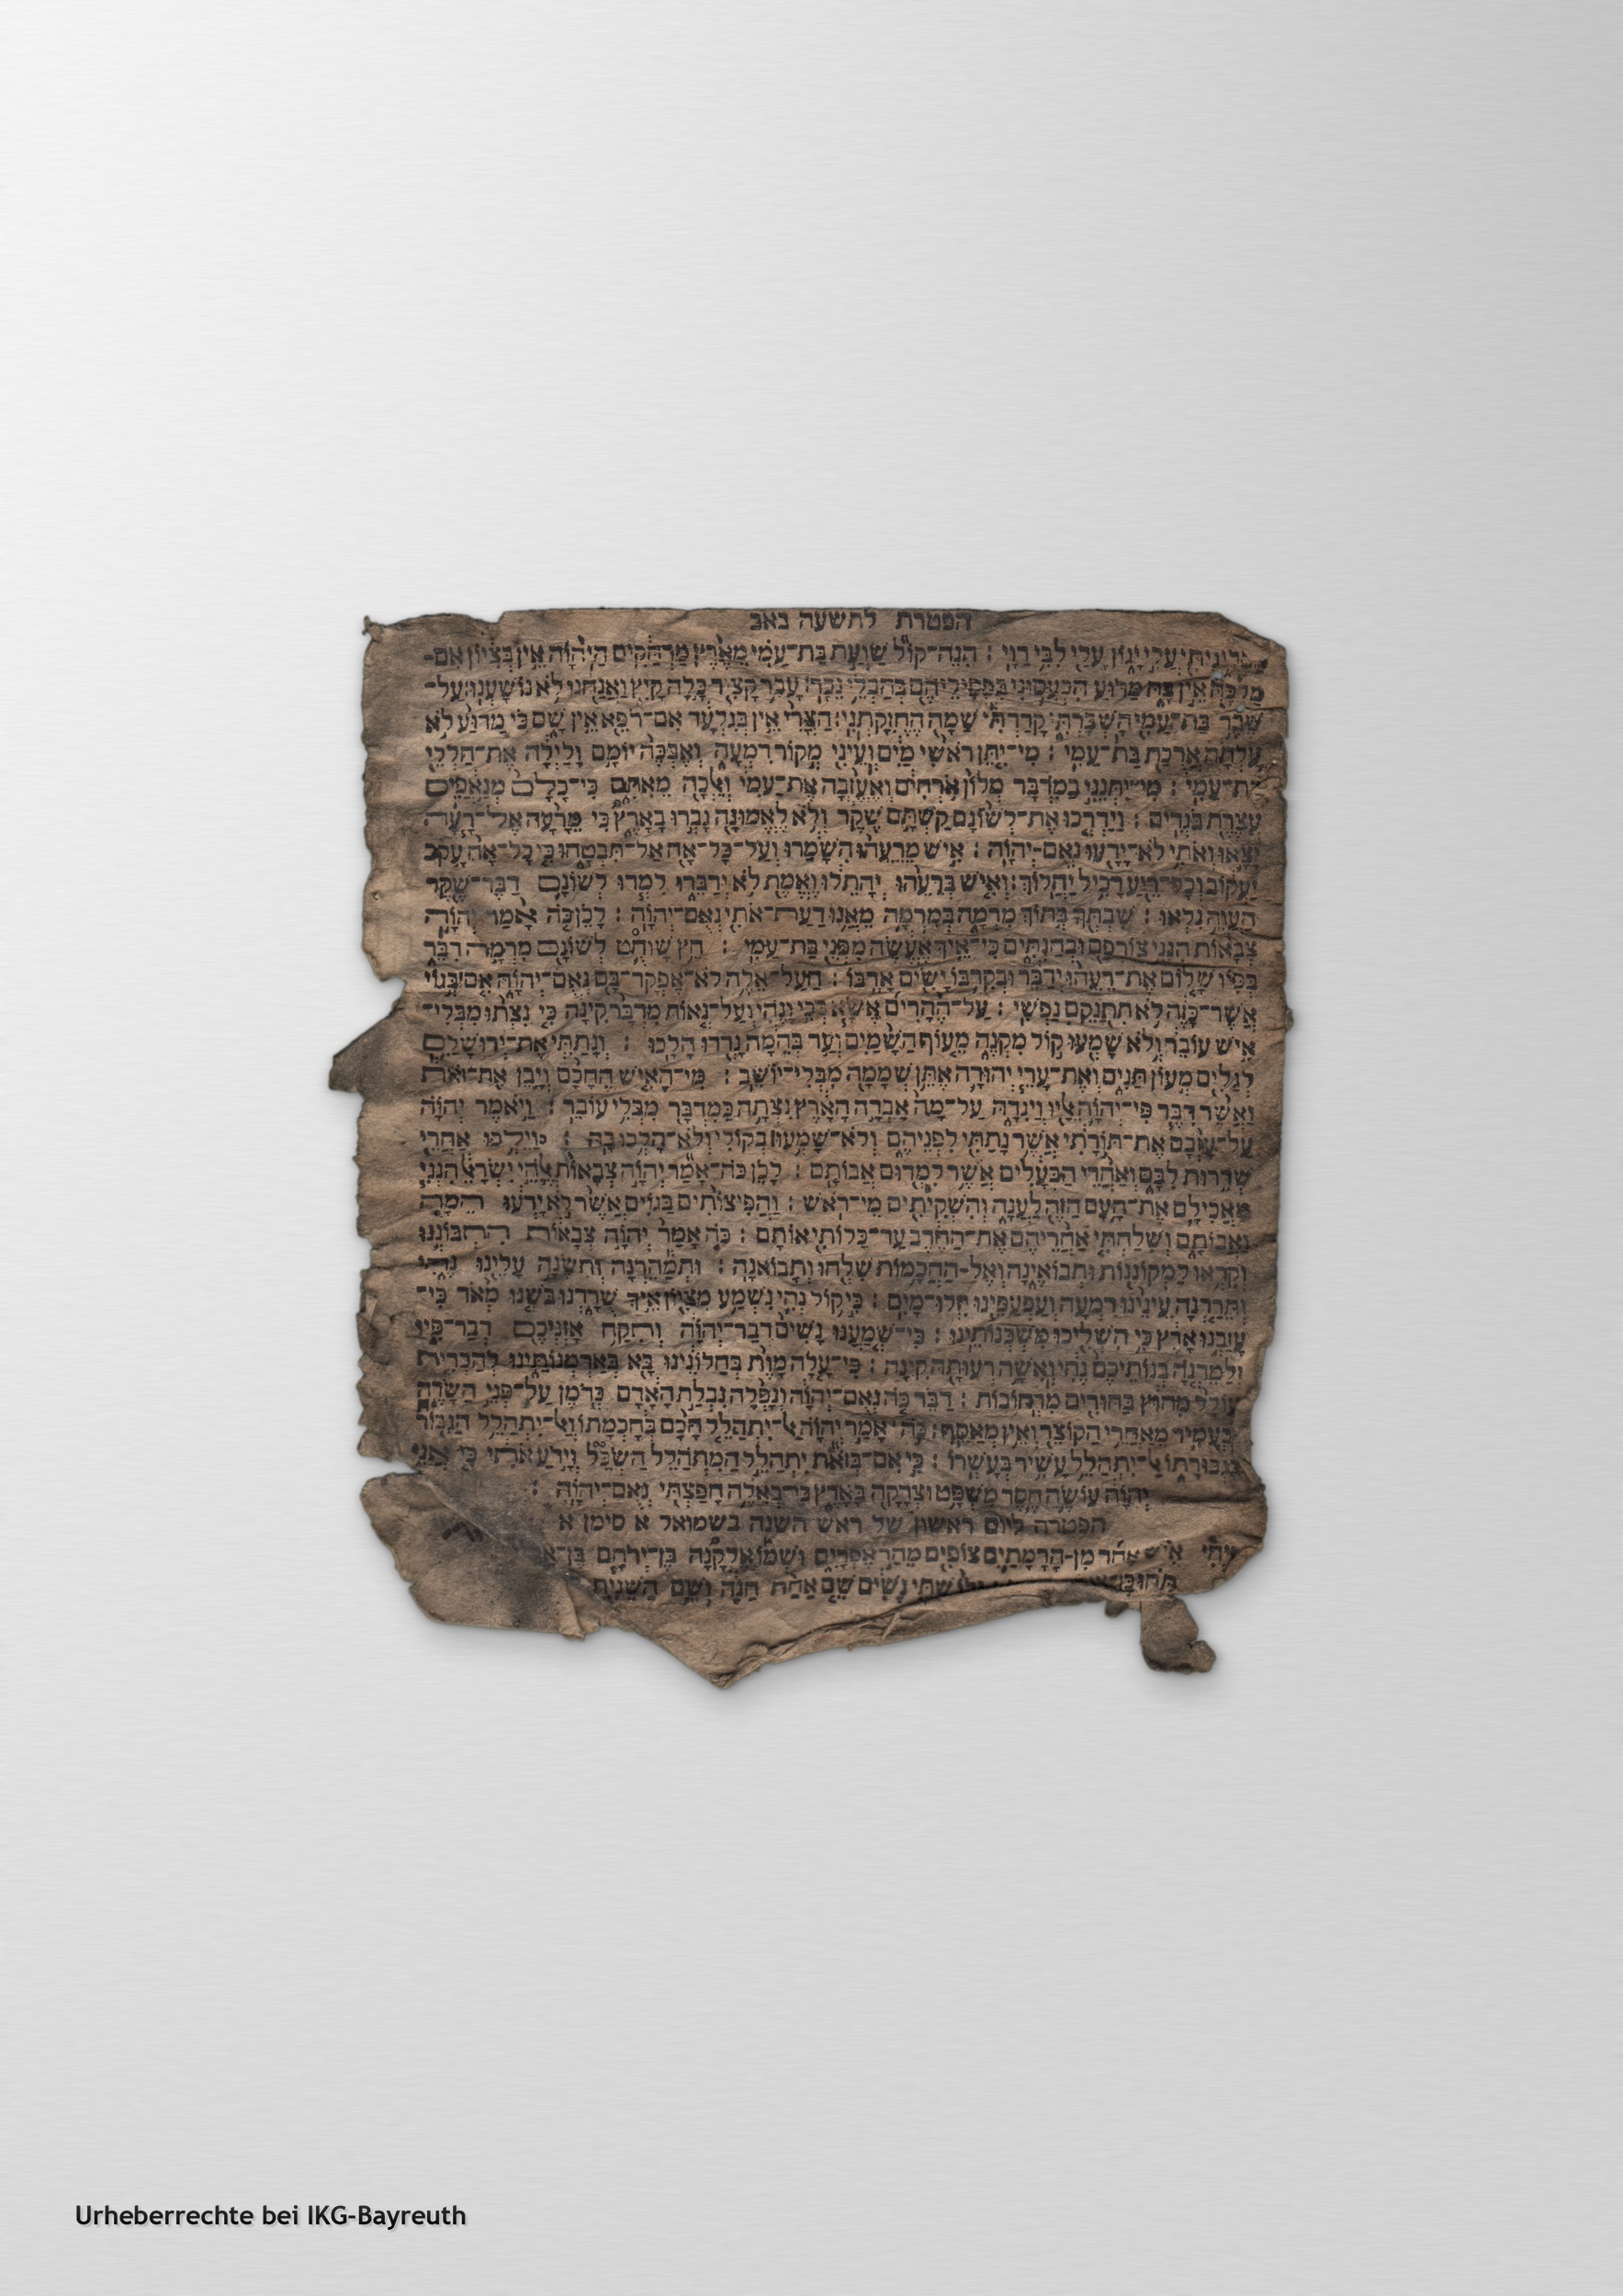 הפטרת לתשעה באב
עלי יגון עלי לבי דוי : הנה־קול שועת בת־עמי מארץ מרחקים היהוה אין בציון אם־
מלכה אין בה מדוע הכעסוני בפסיליהם בהבלי נכר : עבר קציר כלה קיץ ואנחנו לא נושענו : על־
שבר בת־עמי השברתי קדרתי שמה החזקתני : הצרי אין בגלעד אם־רפא אין שם כי מדוע לא
עלתה ארכת בת־עמי : מי־יתן ראשי מים ועיני מקור דמעה ואבכה יומם ולילה את־חללי
בת־עמי : מי־יתנני במדבר מלון ארחים ואעזבה את־עמי ואלכה מאתם כי־כלם מנאפים
עצרת בגדים : וידרכו את־לשונם קשתם שקר ולא לאמונה גברו בארץ כי מרעה אל־רעה
יצאו ואתי לא־ידעו נאם־יהוה : איש מרעהו השמרו ועל־כל־אח אל־תבטחו כי כל־אח עקב
יעקוב וכל־ריע רכיל יהלוך : ואיש ברעהו יהתלו ואמת לא ידברו למדו לשונם דבר־שקר
העוה נלאו : שבתך בתוך מרמה במרמה מאנו דעת־אתי נאם־יהוה : לכן כה אמר יהוה
צבאות הנני צורפם ובחנתים כי־איך אעשה מפני בת־עמי : חץ שוחט לשונם מרמה דבר
בפיו שלום את־רעהו ידבר ובקרבו ישים ארבו : העל־אלה לא־אפקד־בם נאם־יהוה אם בגוי
אשר־כזה לא תתנקם נפשי : על־ההרים אשא בכי ונהי ועל־נאות מדבר קינה כי נצתו מבלי־
איש עובר ולא שמעו קול מקנה מעוף השמים ועד בהמה נדדו הלכו : ונתתי את־ירושלם
לגלים מעון תנים ואת־ערי יהודה אתן שממה מבלי־יושב : מי־האיש החכם ויבן את־זאת
ואשר דבר פי־יהוה אליו ויגדה על־מה אבדה הארץ נצתה כמדבר מבלי עובר : ויאמר יהוה
על־עזבם את־תורתי אשר נתתי לפניהם ולא־שמעו בקולי ולא־הלכו בה : וילכו אחרי
שררות לבם ואחרי הבעלים אשר למדום אבותם : לכן כה־אמר יהוה צבאות אלהי ישראל הנני
מאכילם את־העם הזה לענה והשקיתים מי־ראש : והפיצותים בגוים אשר לא ידעו המה
ואבותם ושלחתי אחריהם את־החרב עד־כלותי אותם : כה אמר יהוה צבאות התבוננו
וקראו למקוננות ותבואינה ואל־החכמות שלחו ותבואנה : ותמהרנה ותשנה עלינו נהי
ותרדנה עינינו דמעה ועפעפינו יזלו־מים : כי קול נהי נשמע מציון איך שדדנו בשנו מאד כי־
עזבנו ארץ כי השליכו משכנותינו : כי־שמענה נשים דבר־יהוה ותקח אזניכם דבר־פיו
ולמדנה בנותיכם נהי ואשה רעותה קינה : כי־עלה מות בחלונינו בא בארמנותינו להכרית
עולל מחוץ בחורים מרחובות : דבר כה נאם־יהוה ונפלה נבלת האדם כדמן על־פני השדה
וכעמיר מאחרי הקוצר ואין מאסף : כה אמר יהוה אל־יתהלל חכם בחכמתו ואל־יתהלל הגבור
בגבורתו אל־יתהלל עשיר בעשרו : כי אם־בזאת יתהלל המתהלל השכל וידע אותי כי אני
יהוה עושה חסד משפט וצדקה בארץ כי־באלה חפצתי נאם־יהוה :
הפטרה ליום ראשון של ראש השנה בשמואל א סימן א
ויהי איש אחד מן־הרמתים צופים מהר אפרים ושמו אלקנה בן־ירחם
שתי נשים שם אחת חנה ושם השנית
Urheberrechte bei IKG-Bayreuth